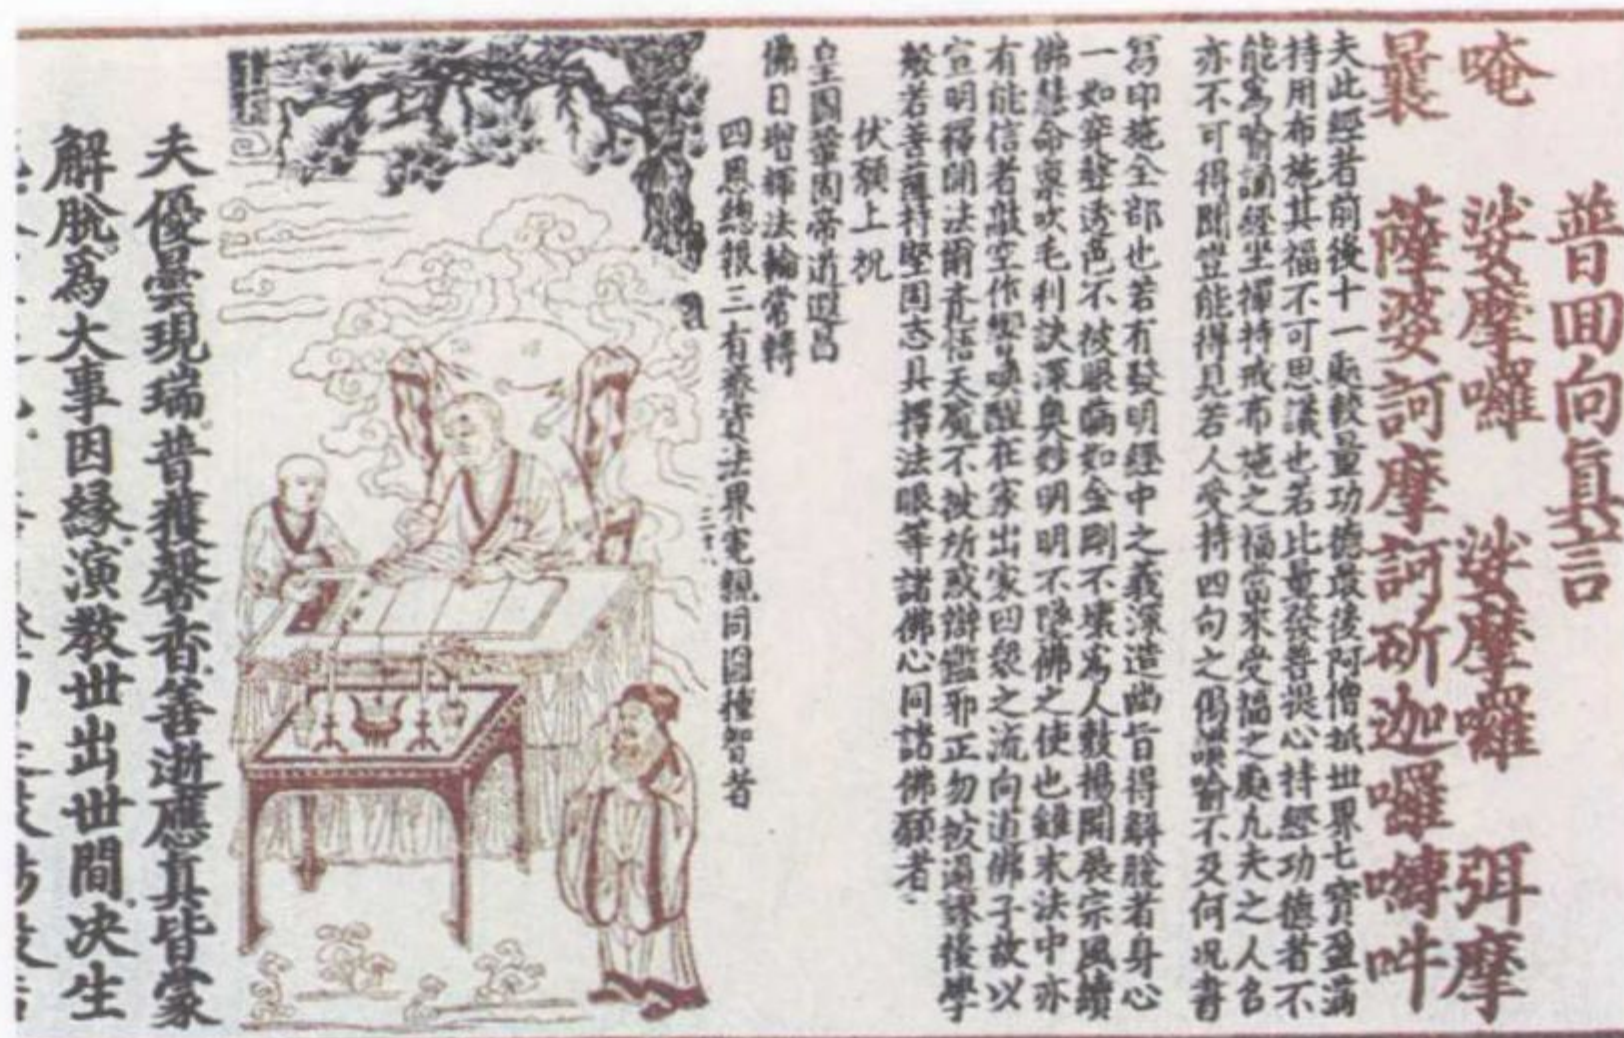 普回向真言
唵 娑摩囉 娑摩囉 弭摩
曩 薩婆訶摩訶斫迦囉嚩吽
夫此經者前後十一處較量功德最後阿僧祇世界七寶盈滿
持用布施其福不可思議也若比量發菩提心持經功德者不
能為喻誦經坐禪持戒布施之福當來受福之處凡夫之人名
亦不可得聞豈能得見若人受持四句之偈喻不及何況書
寫印施全部也若有發明經中之義深造幽旨得解脫者身心
一如空聲透色不被眼如金剛不壞為人敷揚開展宗風續
佛慧命稟吹毛利訣深奧妙明明不墮佛之使也雖末法中亦
有能信者空作響喚醒在家出家凹之流向道佛子故以
宣明禪開法爾悟天魔不被所惑辯邪正勿被過謬後學
般若菩薩持堅固志具擇法眼等諸佛心同諸佛願者
伏願上祝
皇圖鞏固帝道遐昌
佛日增輝法輪常轉
四恩總報三有齊資法界冤親同圓種智者
夫優曇現瑞普獲馨香善逝應真皆蒙
解脫為大事因緣演教世出世間决生